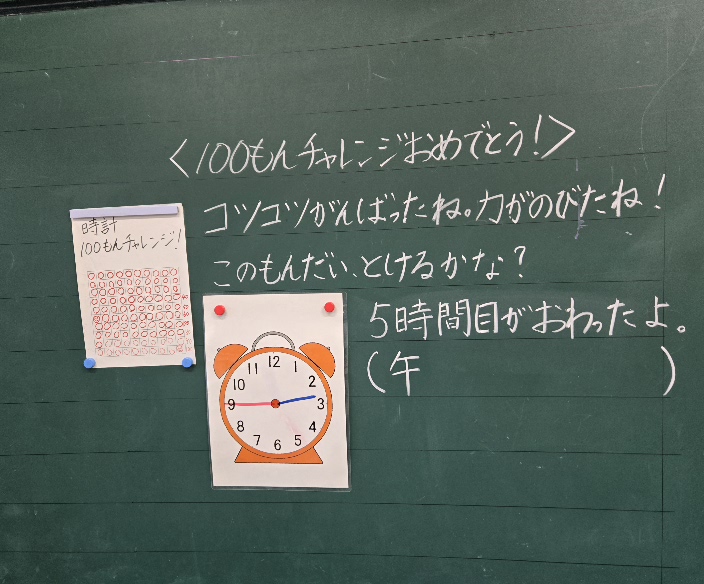 <100もんチャレンジおめでとう!>
コツコツがんばったね。力がのびたね!
時計
100もんチャレンジ!
このもんだい、とけるかな?
5時間目がおわったよ。
(午 )
12
11 1
10 2
9 3
8 4
7 5
6